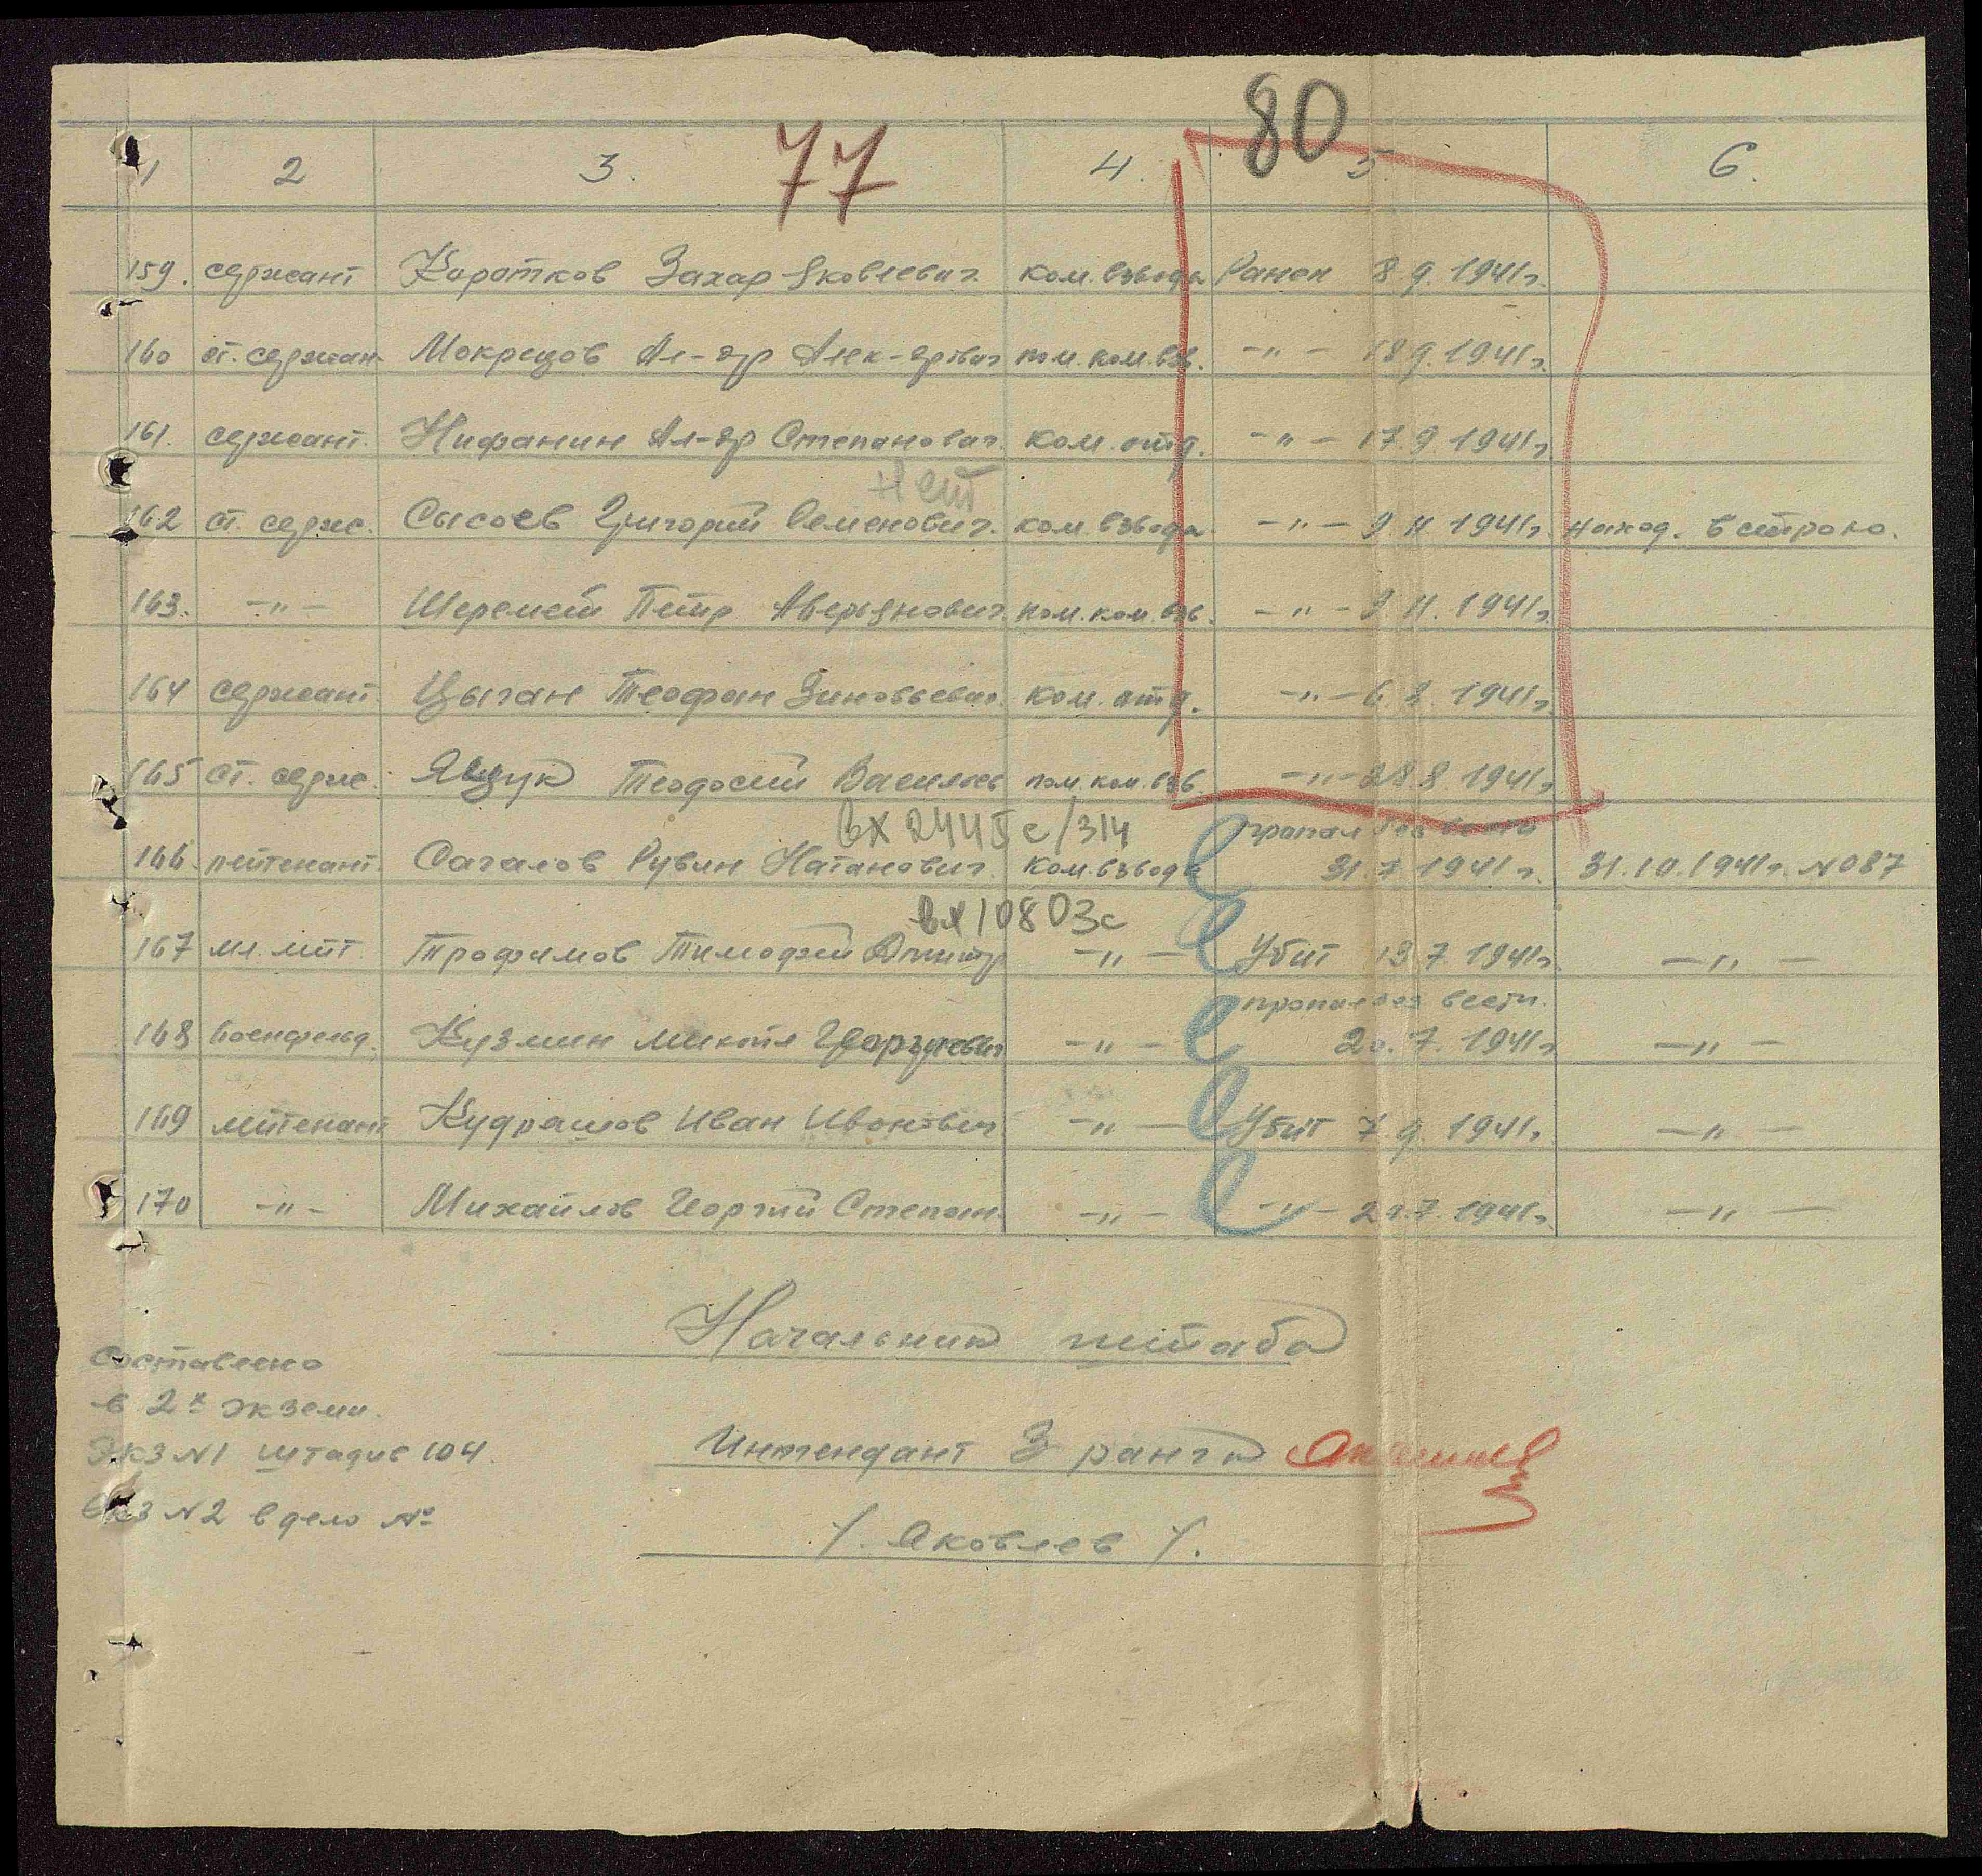 80
77
1 2 3. 4. 5. 6.
159. сержант Коротков Захар Яковлевич. ком. взвода Ранен 8 9. 1941г.
160 ст. сержан Мокрецов Ал-др Алек-дрович пом. ком. взв. -"- 18 9. 1941г.
161. сержант. Нифанин Ал-др Степанович. ком. отд. -"- 17. 9. 1941г.
нет
162 ст. серж. Сысоев Григорий Семенович. ком. взвода. -"- 9. 11. 1941г. наход. в строю.
163. -"- Шеремет Петр Аверьянович. пом. ком. взв. -"- 9 11. 1941г.
164 сержант. Цыган Теофан Зиновьевич. ком. отд. -"- 6. 8. 1941г.
165 ст. серж. Ящук Теодосий Васильев пом. ком. взв. -"- 28 8. 1941г.
вх 2445 с/314 пропал без вести
166. лейтенант. Сагалов Рувин Натанович. ком. взвода 31. 7. 1941 г. 31. 10. 1941г. №087
вх 10803с
167 мл. лейт. Трофимов Тимофей Дмитр -"- Убит 13. 7. 1941г. -"-
пропал без вести.
168 Военфельд. Кузмин Микойл Георгиевич -"- 20. 7. 1941г. -"-
169 лейтенант Кудрашов Иван Иванович -"- Убит 7. 9. 1941г. -"-
170 -"- Михайлов Георгий Степан. -"- -"- 21. 7. 1941г. -"-
Начальник штаба
Составлено
в 2х экземп.
Экз №1 штадив 104.
Экз №2 в дело №
Интендант 3 ранга
/. Яковлев /.